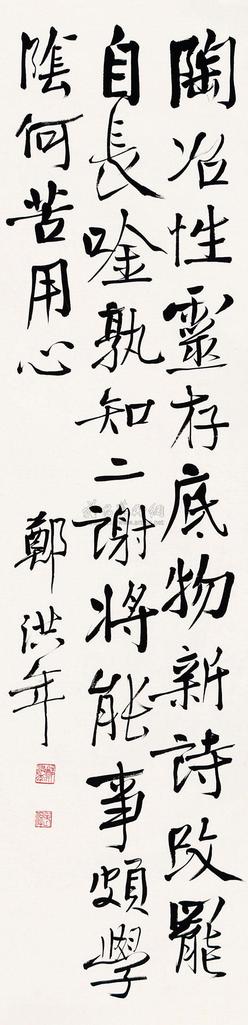 陶冶性靈存底物新詩改罷
自長唫孰知二謝將能事頗學
陰何苦用心
鄭洪年